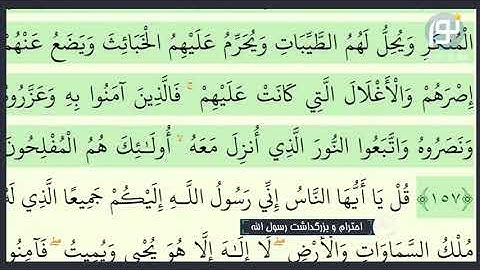 نور
الْمُنكَرِ وَيُحِلُّ لَهُمُ الطَّيِّبَاتِ وَيُحَرِّمُ عَلَيْهِمُ الْخَبَائِثَ وَيَضَعُ عَنْهُمْ
إِصْرَهُمْ وَالْأَغْلَالَ الَّتِي كَانَتْ عَلَيْهِمْ ۚ فَالَّذِينَ آمَنُوا بِهِ وَعَزَّرُوهُ
وَنَصَرُوهُ وَاتَّبَعُوا النُّورَ الَّذِي أُنزِلَ مَعَهُ ۙ أُولَـٰئِكَ هُمُ الْمُفْلِحُونَ
﴿١٥٧﴾ قُلْ يَا أَيُّهَا النَّاسُ إِنِّي رَسُولُ اللَّـهِ إِلَيْكُمْ جَمِيعًا الَّذِي لَهُ
احترام و بزرگداشت رسول الله
مُلْكُ السَّمَاوَاتِ وَالْأَرْضِ ۖ لَا إِلَـٰهَ إِلَّا هُوَ يُحْيِي وَيُمِيتُ ۖ فَآمِنُوا